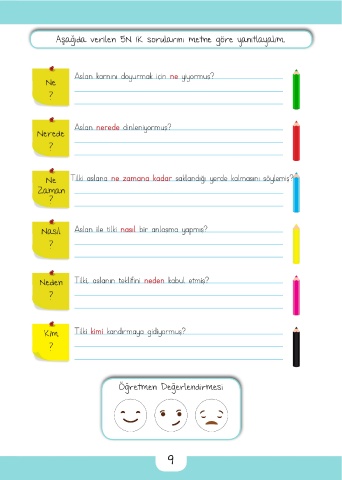 Aşağıda verilen 5N 1K sorularını metne göre yanıtlayalım.
Ne
?
Aslan karnını doyurmak için ne yiyormuş?
Nerede
?
Aslan nerede dinleniyormuş?
Ne
Zaman
?
Tilki aslana ne zamana kadar saklandığı yerde kalmasını söylemiş?
Nasıl
?
Aslan ile tilki nasıl bir anlaşma yapmış?
Neden
?
Tilki, aslanın teklifini neden kabul etmiş?
Kim
?
Tilki kimi kandırmaya gidiyormuş?
Öğretmen Değerlendirmesi
9